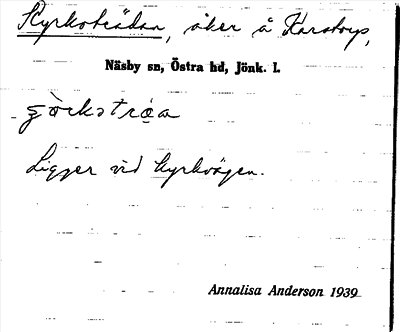 Kyrkoträdan, åker å Karstorp,
Näsby sn, Östra hd, Jönk. l.
Ligger vid kyrkvägen.
Annalisa Anderson 1939